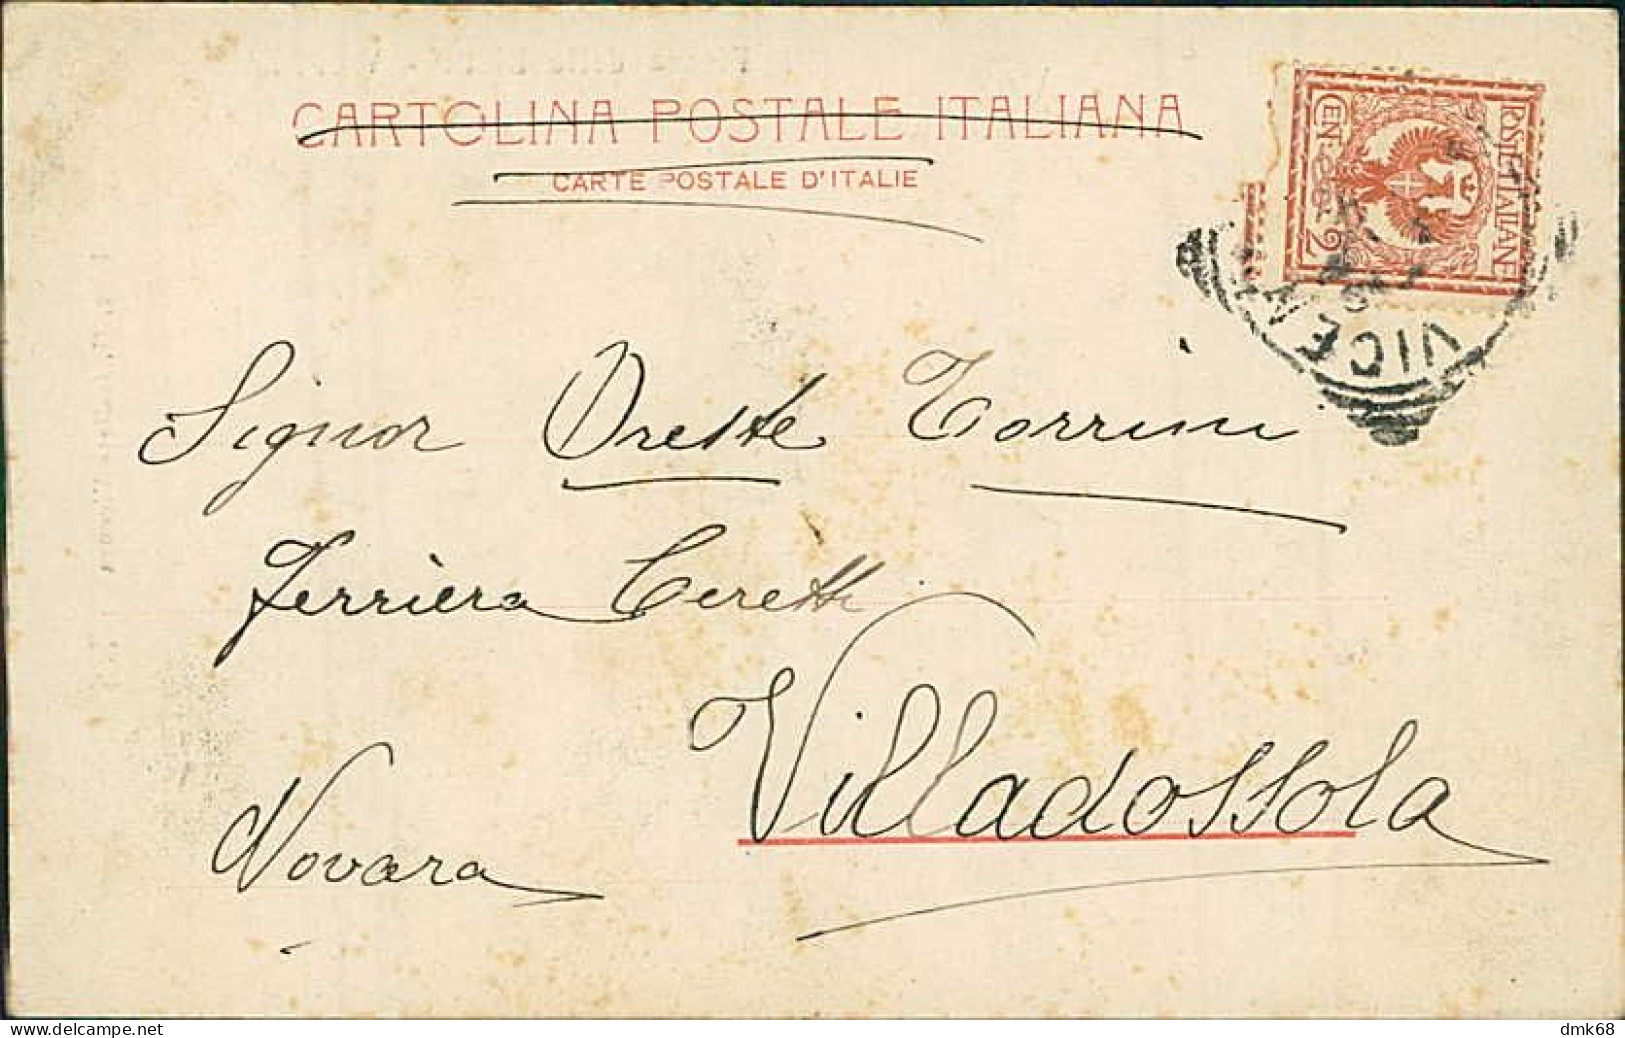 CARTOLINA POSTALE ITALIANA
CARTE POSTALE D'ITALIE
POSTE ITALIANE
CEN. 2
VICENZA
Signor Oreste Torrini
Ferriera Ceretti
Villadossola
Novara
dmk68